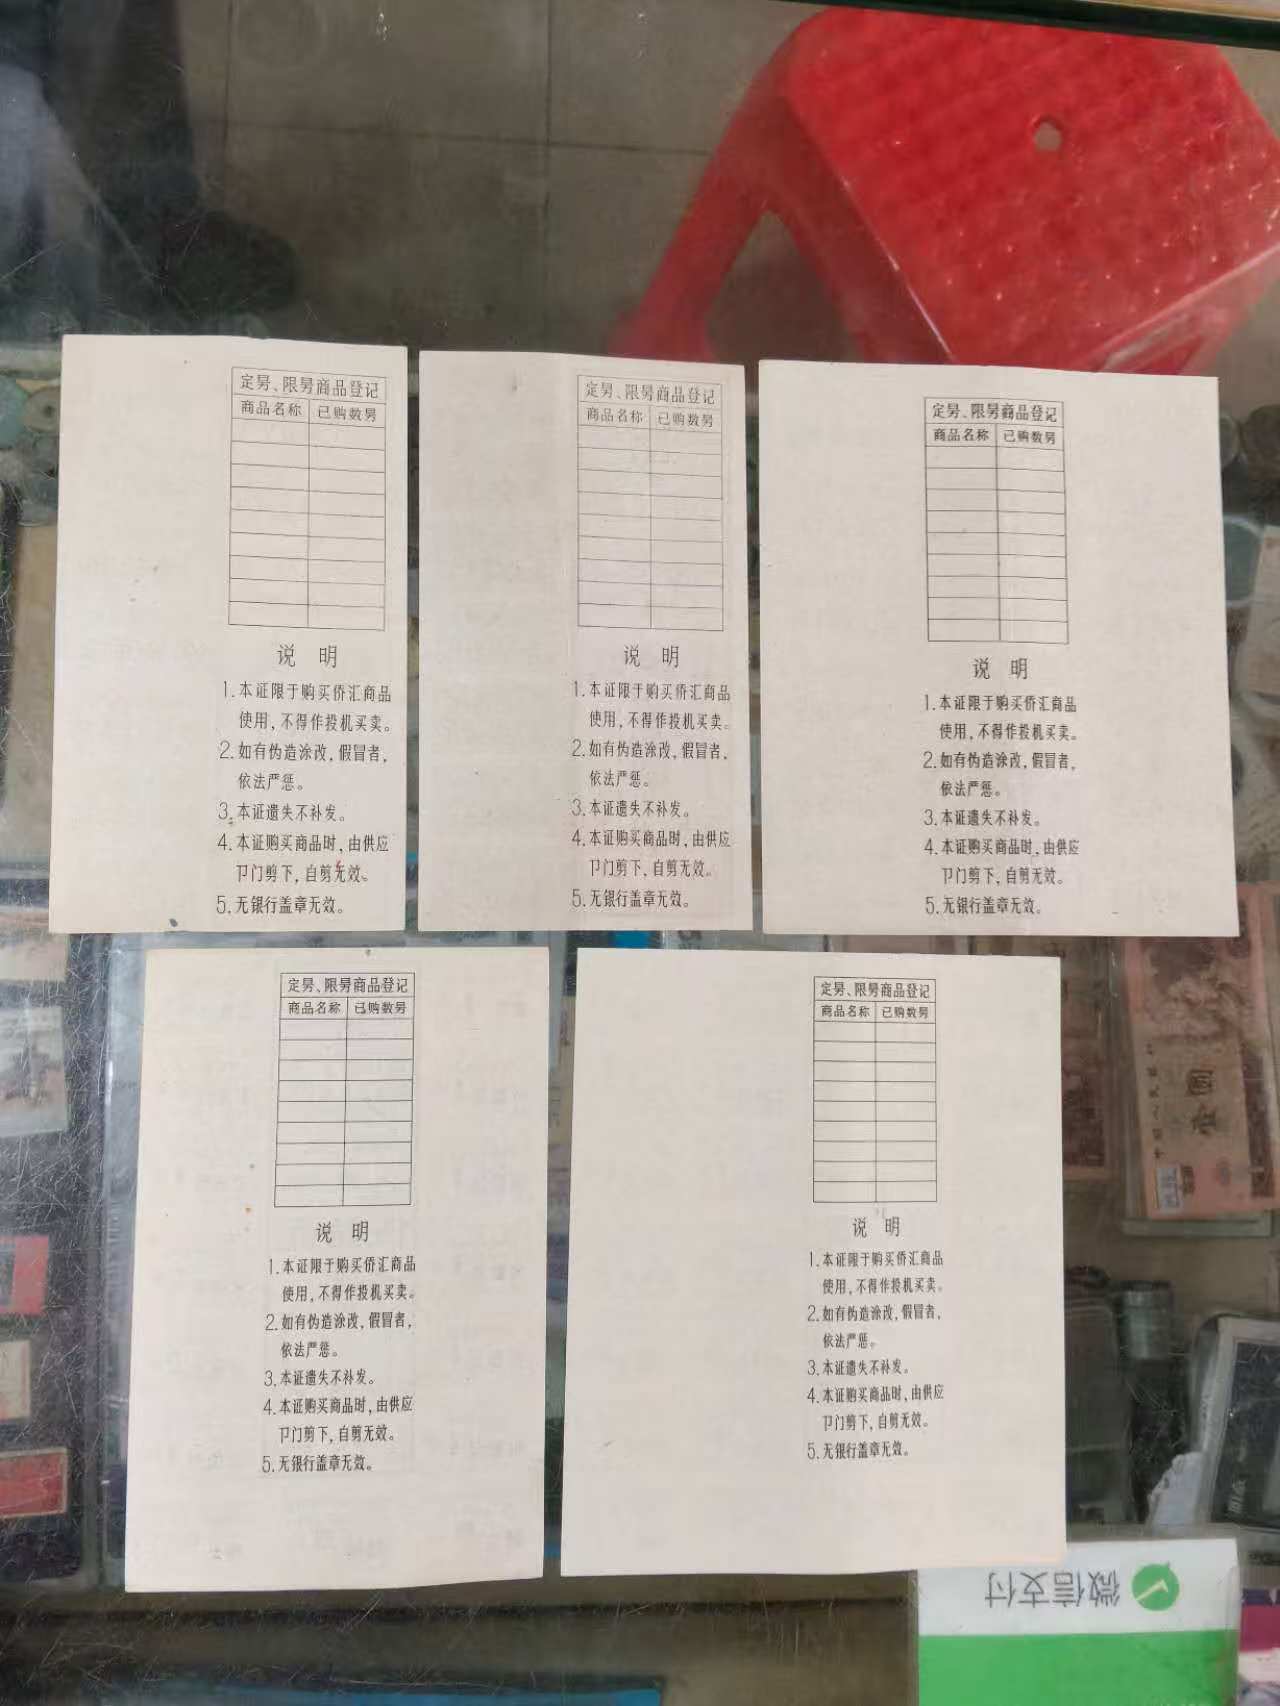 定量、限量商品登记
商品名称 已购数量
说 明
1.本证限于购买侨汇商品
使用,不得作投机买卖。
2.如有伪造涂改,假冒者,
依法严惩。
3.本证遗失不补发。
4.本证购买商品时,由供应
卩门剪下,自剪无效。
5.无银行盖章无效。
定量、限量商品登记
商品名称 已购数量
说 明
1.本证限于购买侨汇商品
使用,不得作投机买卖。
2.如有伪造涂改,假冒者,
依法严惩。
3.本证遗失不补发。
4.本证购买商品时,由供应
卩门剪下,自剪无效。
5.无银行盖章无效。
定量、限量商品登记
商品名称 已购数量
说 明
1.本证限于购买侨汇商品
使用,不得作投机买卖。
2.如有伪造涂改,假冒者,
依法严惩。
3.本证遗失不补发。
4.本证购买商品时,由供应
卩门剪下,自剪无效。
5.无银行盖章无效。
定量、限量商品登记
商品名称 已购数量
说 明
1.本证限于购买侨汇商品
使用,不得作投机买卖。
2.如有伪造涂改,假冒者,
依法严惩。
3.本证遗失不补发。
4.本证购买商品时,由供应
卩门剪下,自剪无效。
5.无银行盖章无效。
定量、限量商品登记
商品名称 已购数量
说 明
1.本证限于购买侨汇商品
使用,不得作投机买卖。
2.如有伪造涂改,假冒者,
依法严惩。
3.本证遗失不补发。
4.本证购买商品时,由供应
卩门剪下,自剪无效。
5.无银行盖章无效。
微信支付